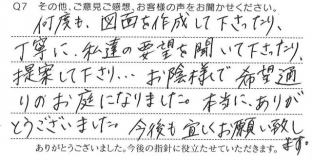 Q7 その他、ご意見ご感想、お客様の声をお聞かせください。
何度も、図面を作成して下さったり、
丁寧に、私達の要望を聞いて下さったり、
提案して下さり… お陰様で希望通
りのお庭になりました。本当に、ありが
とうございました。今後も宜しくお願い致し
ます。
ありがとうございました。今後の指針に役立たせていただきます。